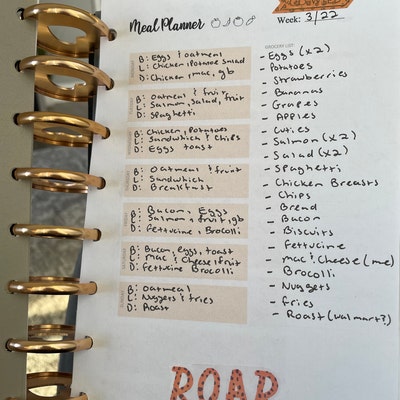 Meal Planner
Week: 3/22
B: Eggs & oatmeal
L: Chicken, Potatoe Salad
D: Chicken, mac, gb
B: Oatmeal & fruit
L: Salmon, Salad, fruit
D: Spaghetti
B: Chicken, Potatoes
L: Sandwhich & Chips
D: Eggs toast
B: Oatmeal & fruit
L: Sandwhich
D: Breakfast
B: Bacon, Eggs
L: Salmon, fruit, gb
D: Fettucine, Brocolli
B: Bacon, eggs, toast
L: Mac & Cheese, fruit
D: Fettucine Brocolli
B: Oatmeal
L: Nuggets & fries
D: Roast
GROCERY LIST
- Eggs (x2)
- Potatoes
- Strawberries
- Bananas
- Grapes
- Apples
- Cuties
- Salmon (x2)
- Salad (x2)
- Spaghetti
- Chicken Breasts
- Chips
- Bread
- Bacon
- Biscuits
- Fettucine
- Mac & Cheese (me)
- Brocolli
- Nuggets
- Fries
- Roast (walmart?)
ROAR